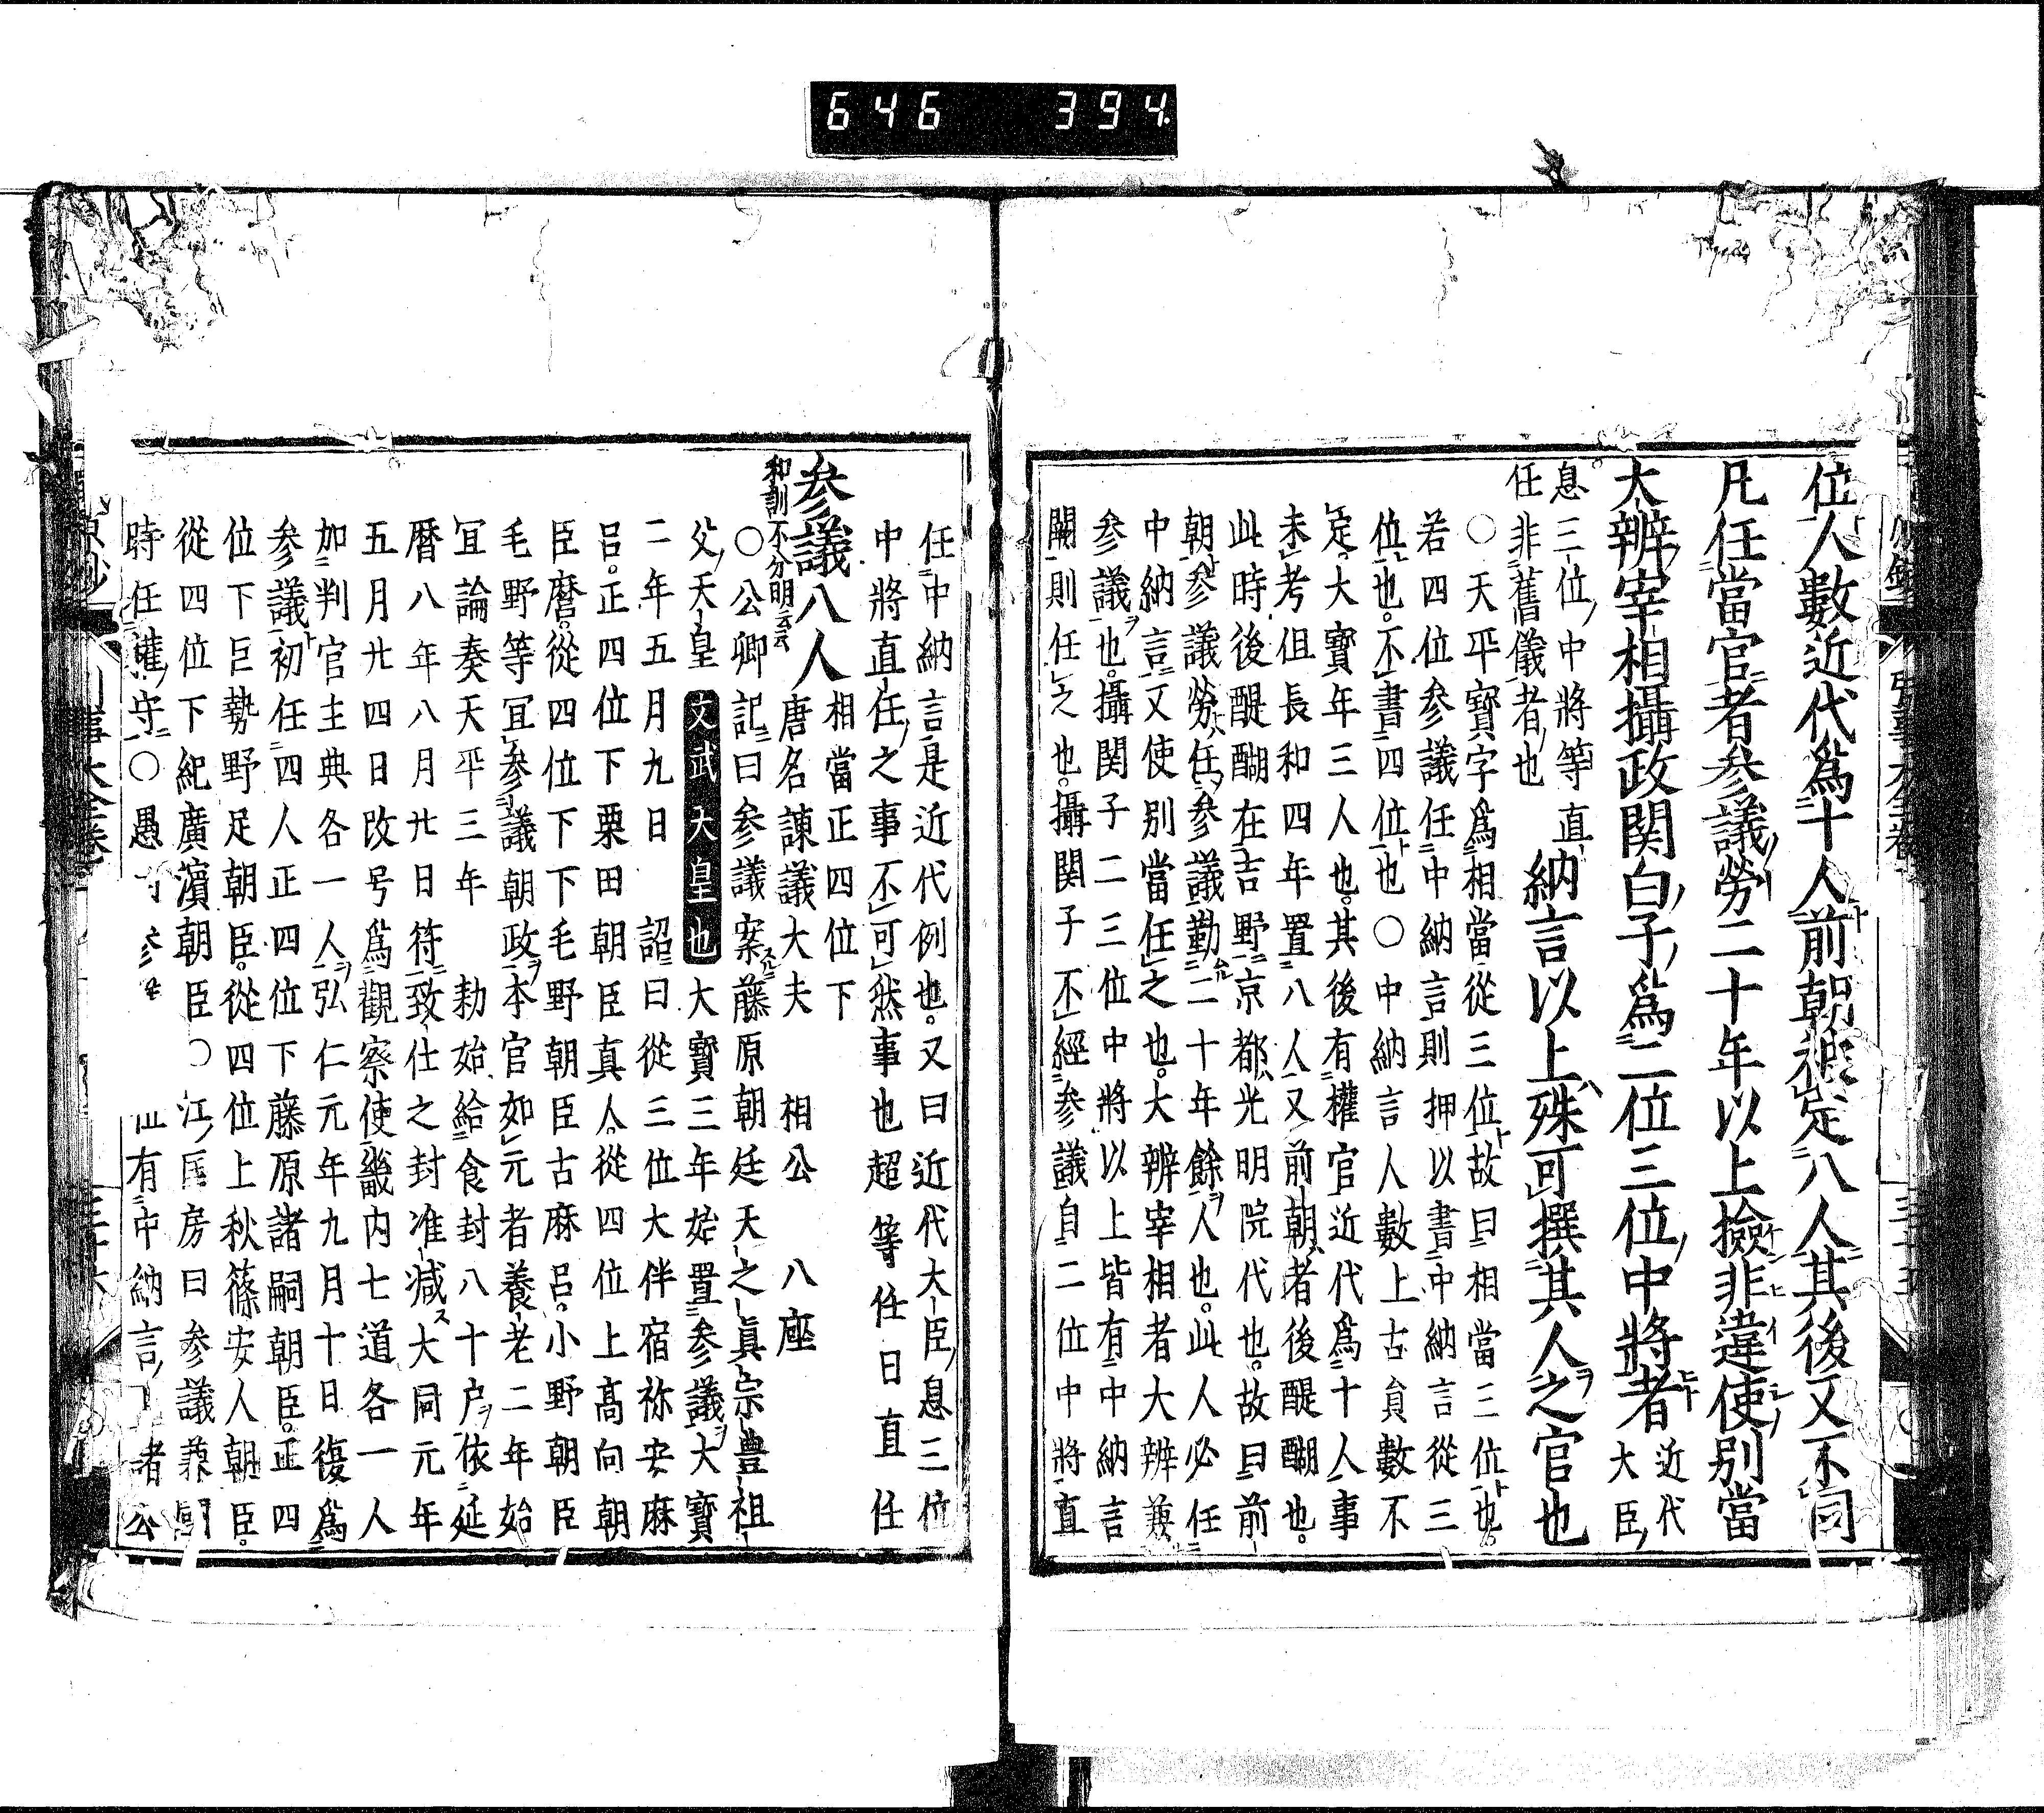 646 394
位人數近代爲十人前朝被定八人其後又不同
凡任當官者参議勞二十年以上撿非違使別當
大辨宰相攝政関白子爲二位三位中將者近代大臣
息三位中將等直任非舊儀者也納言以上殊可撰其人之官也
○天平寳字爲相當從三位故曰相當三位也
若四位参議任中納言則押以書中納言從三
位也不書四位也○中納言人數上古貟數不
定大寳年三人也其後有權官近代爲十人事
未考但長和四年置八人又前朝者後醍醐也
此時後醍醐在吉野京都光明院代也故曰前
朝参議勞任参議勤二十年餘人也此人必任
中納言又使別當任之也大辨宰相者大辨兼
参議也攝関子二三位中將以上皆有中納言
闕則任之也攝関子不經参議自二位中將直
任中納言是近代例也又曰近代大臣息三位
中將直任之事不可然事也超等任日直任
参議八人相當正四位下唐名諌議大夫 相公 八座
和訓不分明云云
○公卿記曰参議案藤原朝廷天之眞宗豊祖
父天皇文武大皇也大寳三年始置参議大寳
二年五月九日 詔曰從三位大伴宿祢安麻
呂正四位下粟田朝臣真人從四位上高向朝
臣麿從四位下下毛野朝臣古麻呂小野朝臣
毛野等冝参議朝政本官如元者養老二年始
冝論奏天平三年 勅始給食封八十户依延
暦八年八月廿日符致仕之封准減大同元年
五月廿四日改号爲觀察使畿内七道各一人
加判官主典各一人弘仁元年九月十日復爲
参議初任四人正四位下藤原諸嗣朝臣正四
位下巨勢野足朝臣從四位上秋篠安人朝臣
從四位下紀廣濱朝臣○江匡房曰参議兼
時任權守○愚 有中納言 者公